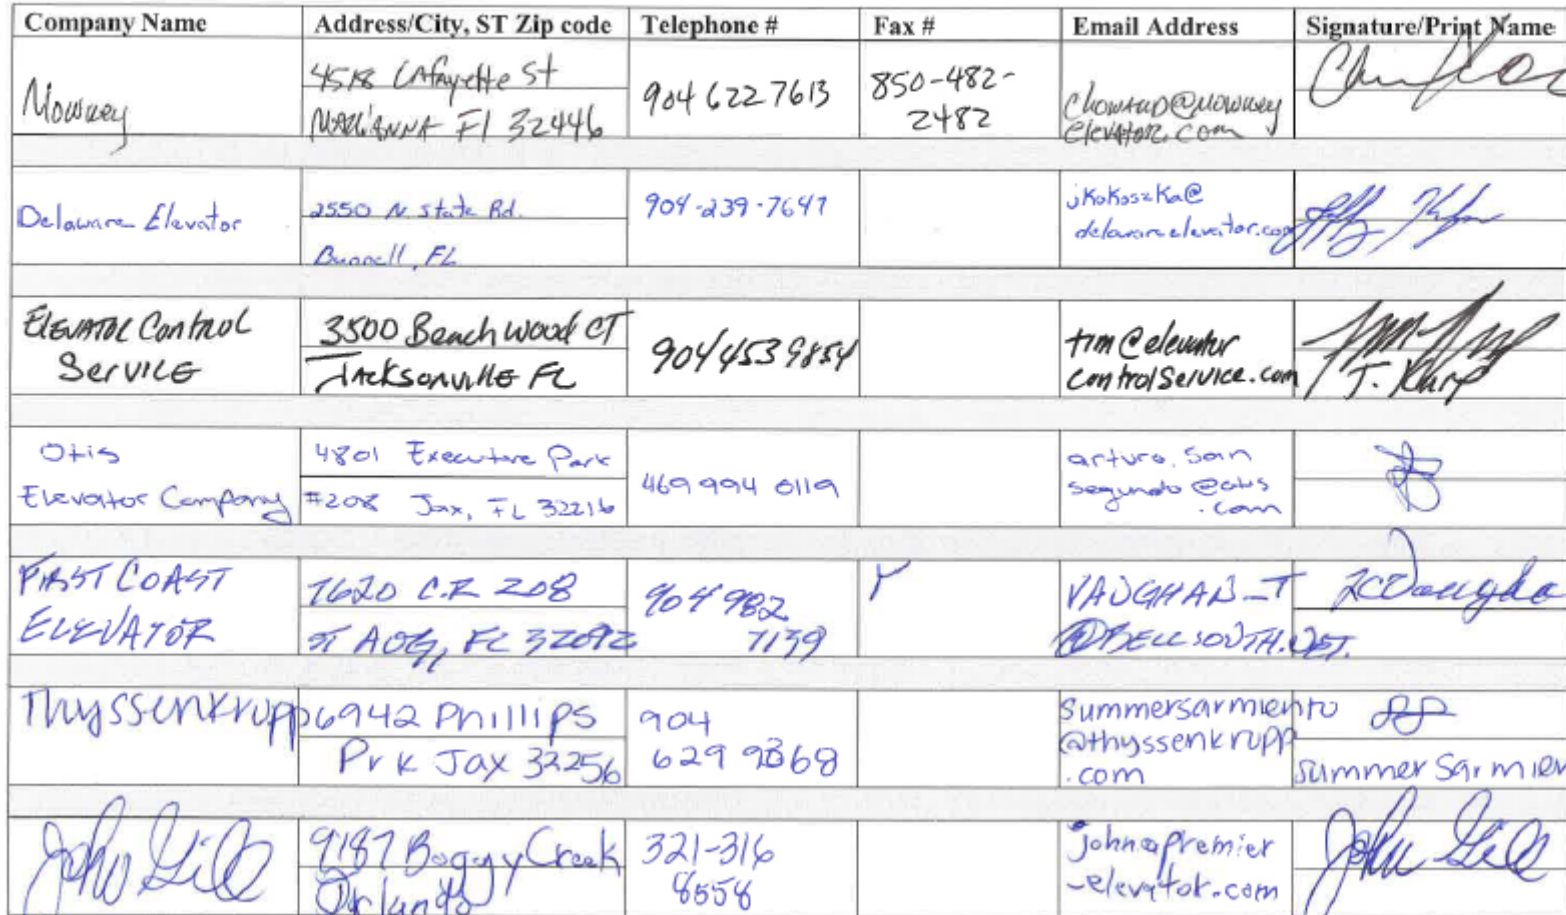 Company Name Address/City, ST Zip code Telephone # Fax # Email Address Signature/Print Name
Mowrey
4518 Lafayette St
Marianna Fl 32446
904 622 7613
850-482-
2482
choward@mowrey
elevator.com
Delaware Elevator
2550 N. State Rd.
Bunnell, FL
904-239-7647
jkokoszka@
delawareelevator.com
Elevator Control
Service
3500 Beachwood CT
Jacksonville FL
904 453 9854
tim@elevator
controlservice.com
T. Karp
Otis
Elevator Company
4801 Executive Park
#208 Jax, FL 32216
469 994 0119
arturo.san
segundo@otis
.com
First Coast
Elevator
7620 C.R 208
ST AUG, FL 32092
904 982
7139
VAUGHAN_T
@BELLSOUTH.NET.
Thyssenkrupp
6942 Phillips
Prk Jax 32256
904
629 9868
summersarmiento
@thyssenkrupp
.com
Summer Sarmien
John Gill
9187 Boggy Creek
Orlando
321-316
8558
john@premier
-elevator.com
John Gill